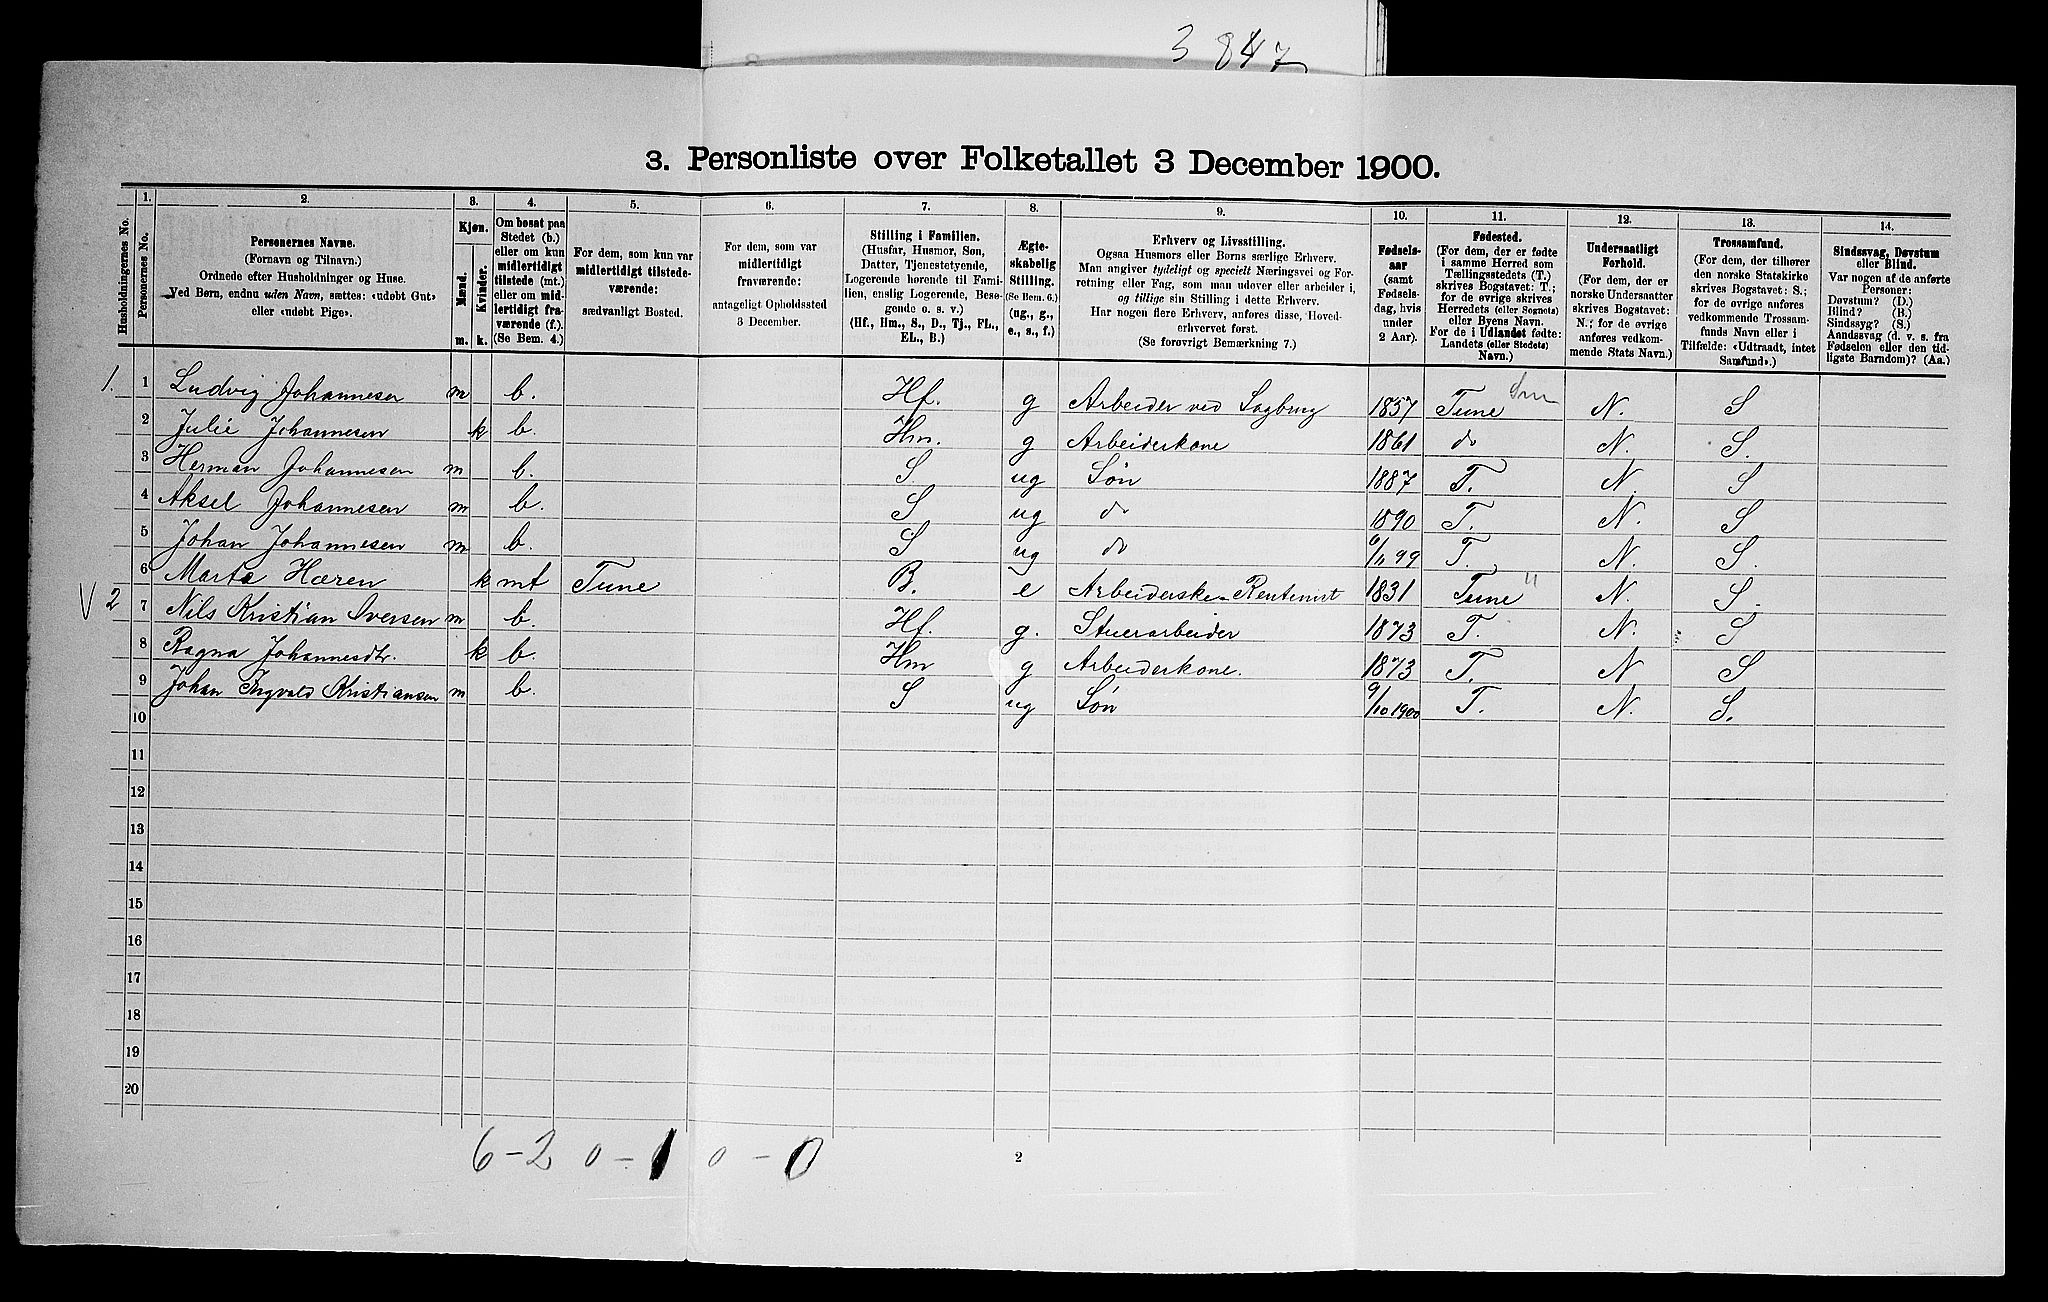 3 847
3. Personliste over Folketallet 3 December 1900.
Husholdningernes No.
1. Personernes No.
2. Personernes Navne. (Fornavn og Tilnavn.) Ordnede efter Husholdninger og Huse. Ved Børn, endnu uden Navn, sættes: «udøbt Gut» eller «udøbt Pige».
3. Kjøn. Mænd. m. Kvinder. k.
4. Om bosat paa Stedet (b.) eller om kun midlertidigt tilstede (mt.) eller om midlertidigt fraværende (f.). (Se Bem. 4.)
5. For dem, som kun var midlertidigt tilstedeværende: sædvanligt Bosted.
6. For dem, som var midlertidigt fraværende: antageligt Opholdssted 3 December.
7. Stilling i Familien. (Husfar, Husmor, Søn, Datter, Tjenestetyende, Logerende hørende til Familien, enslig Logerende, Besøgende o. s. v.) (Hf., Hm., S., D., Tj., FL., EL., B.)
8. Ægteskabelig Stilling. (Se Bem. 6.) (ug., g., e., s., f.)
9. Erhverv og Livsstilling. Ogsaa Husmors eller Børns særlige Erhverv. Man angiver tydeligt og specielt Næringsvei og Forretning eller Fag, som man udøver eller arbeider i, og tillige sin Stilling i dette Erhverv. Har nogen flere Erhverv, anføres disse, Hovederhvervet først. (Se forøvrigt Bemærkning 7.)
10. Fødselsaar (samt Fødselsdag, hvis under 2 Aar).
11. Fødested. (For dem, der er fødte i samme Herred som Tællingsstedets (T.) skrives Bogstavet: T.; for de øvrige skrives Herredets (eller Sognets) eller Byens Navn. For de i Udlandet fødte: Landets (eller Stedets) Navn.)
12. Undersaatligt Forhold. (For dem, der er norske Undersaatter skrives Bogstavet: N.; for de øvrige anføres vedkommende Stats Navn.)
13. Trossamfund. (For dem, der tilhører den norske Statskirke skrives Bogstavet: S.; for de øvrige anføres vedkommende Trossamfunds Navn eller i Tilfælde: «Udtraadt, intet Samfund».)
14. Sindssvag, Døvstum eller Blind. Var nogen af de anførte Personer: Døvstum? (D.) Blind? (B.) Sindssyg? (S.) Aandssvag (d. v. s. fra Fødselen eller den tidligste Barndom)? (Aa.)
1. 1 Ludvig Johannesen m b. Hf. g Arbeider ved Sagbrug 1857 Tune N. S
2 Julie Johannesen k b. Hm. g Arbeiderkone 1861 do N. S.
3 Herman Johannesen m b. S. ug Søn 1887 T. N S
4 Aksel Johannesen m b. S ug do 1890 T. N. S
5 Johan Johannesen m b. S ug do 9/11 99 T. N. S.
6 Marte Hæren k mt Tune B. e Arbeiderske-Rentenist 1831 Tune " N. S.
V 2 7 Nils Kristian Iversen m b. Hf. g. Stuerarbeider 1873 T. N. S
8 Ragna Johannesdtr. k b. Hm g Arbeiderkone. 1873 T. N S
9 Johan Ingvald Kristiansen m b. S ug Søn 9/10 1900 T. N. S.
10
11
12
13
14
15
16
17
18
19
20
6-2 0-1 0-0
2